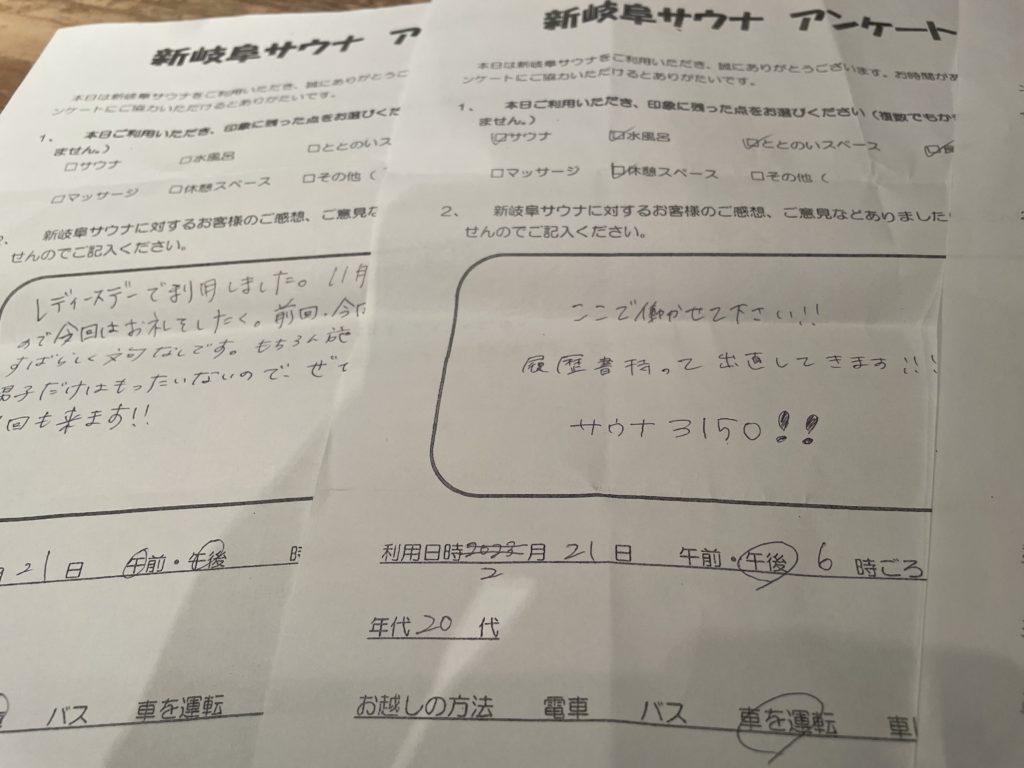 新岐阜サウナ ア
本日は新岐阜サウナをご利用いただき、誠にありがとうご
ンケートにご協力いただけるとありがたいです。
1、 本日ご利用いただき、印象に残った点をお選びくだ
ません。）
□サウナ □水風呂 □ととのいス
□マッサージ □休憩スペース □その他（
2、 新岐阜サウナに対するお客様のご感想、ご意見な
せんのでご記入ください。
レディースデーで利用しました。11月
ので今回はお礼をしたく。前回・今回
すばらしく文句なしです。もちろん施
男子だけはもったいないので、ぜて
回も来ます!!
月21日 午前・午後 時
バス 車を運転
新岐阜サウナ アンケート
本日は新岐阜サウナをご利用いただき、誠にありがとうございます。お時間があ
ンケートにご協力いただけるとありがたいです。
1、 本日ご利用いただき、印象に残った点をお選びください（複数でもか
ません。）
☑サウナ ☑水風呂 ☑ととのいスペース ☑食
□マッサージ ☑休憩スペース □その他（
2、 新岐阜サウナに対するお客様のご感想、ご意見などありました
せんのでご記入ください。
ここで働かせて下さい!!
履歴書持って出直してきます!!!
サウナ3150!!
利用日時2023月 21日 午前・午後 6 時ごろ
2
年代 20 代
お越しの方法 電車 バス 車を運転 車